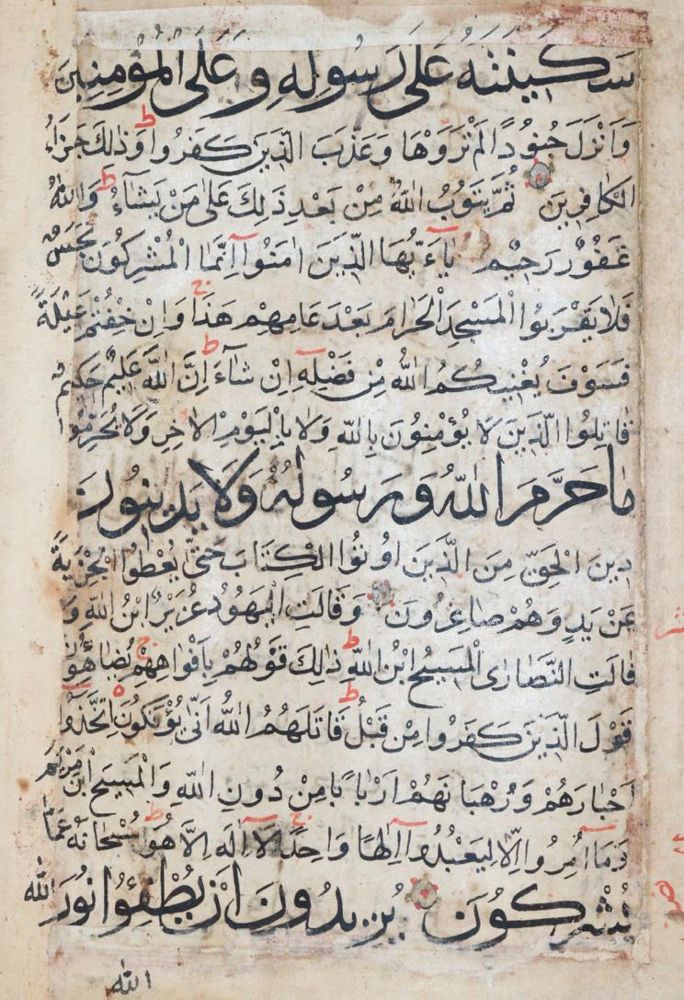 سَكِينَتَهُ عَلَىٰ رَسُولِهِ وَعَلَى الْمُؤْمِنِينَ
وَاَنْزَلَ جُنُودًا لَمْ تَرَوْهَا وَعَذَّبَ الَّذِينَ كَفَرُوا ط وَذٰلِكَ جَزَاءُ
الْكَافِرِينَ ثُمَّ يَتُوبُ اللّٰهُ مِنْ بَعْدِ ذٰلِكَ عَلَىٰ مَنْ يَشَآءُ ط وَاللّٰهُ
غَفُورٌ رَحِيمٌ يَآءَيُّهَا الَّذِينَ اٰمَنُوا اِنَّمَا الْمُشْرِكُونَ نَجَسٌ
فَلَا يَقْرَبُوا الْمَسْجِدَ الْحَرَامَ بَعْدَ عَامِهِمْ هٰذَا ج وَاِنْ خِفْتُمْ عَيْلَةً
فَسَوْفَ يُغْنِيكُمُ اللّٰهُ مِنْ فَضْلِهِ اِنْ شَآءَ ط اِنَّ اللّٰهَ عَلِيمٌ حَكِيمٌ
قَاتِلُوا الَّذِينَ لَا يُؤْمِنُونَ بِاللّٰهِ وَلَا بِالْيَوْمِ الْاٰخِرِ وَلَا يُحَرِّمُونَ
مَا حَرَّمَ اللّٰهُ وَرَسُولُهُ وَلَا يَدِينُونَ
دِينَ الْحَقِّ مِنَ الَّذِينَ اُوتُوا الْكِتَابَ حَتَّىٰ يُعْطُوا الْجِزْيَةَ
عَنْ يَدٍ وَهُمْ صَاغِرُونَ وَقَالَتِ الْيَهُودُ عُزَيْرٌ ابْنُ اللّٰهِ وَ
قَالَتِ النَّصَارَى الْمَسِيحُ ابْنُ اللّٰهِ ط ذٰلِكَ قَوْلُهُمْ بِاَفْوَاهِهِمْ ج يُضَاهِؤُنَ
قَوْلَ الَّذِينَ كَفَرُوا مِنْ قَبْلُ ط قَاتَلَهُمُ اللّٰهُ اَنَّىٰ يُؤْفَكُونَ اتَّخَذُوا
اَحْبَارَهُمْ وَرُهْبَانَهُمْ اَرْبَابًا مِنْ دُونِ اللّٰهِ وَالْمَسِيحَ ابْنَ مَرْيَمَ
وَمَآ اُمِرُوا اِلَّا لِيَعْبُدُوآ اِلٰهًا وَاحِدًا ج لَآ اِلٰهَ اِلَّا هُوَ ط سُبْحَانَهُ عَمَّا
يُشْرِكُونَ يُرِيدُونَ اَنْ يُطْفِئُوا نُورَ اللّٰهِ
اللّٰه